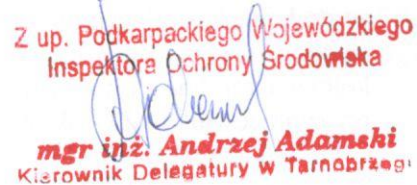 Z up. Podkarpackiego Wojewódzkiego
Inspektora Ochrony Środowiska
mgr inż. Andrzej Adamski
Kierownik Delegatury w Tarnobrzegu